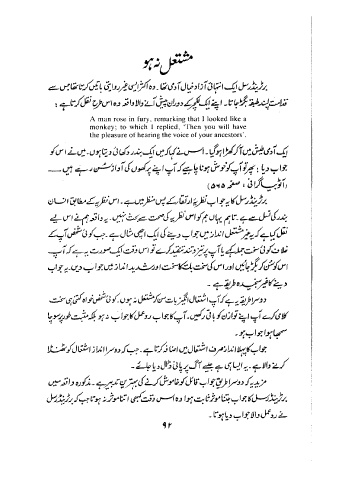 مشتعل نہ ہو
برٹرینڈ رسل ایک انتہائی آزاد خیال آدمی تھا۔ وہ اکثر ایسی غیر روایتی باتیں کرتا تھا جس سے
قدامت پسند طبقہ بگڑ جاتا۔ اپنے ایک لکچر کے دوران پیش آنے والا واقعہ وہ اس طرح نقل کرتا ہے :
A man rose in fury, remarking that I looked like a
monkey; to which I replied, 'Then you will have
the pleasure of hearing the voice of your ancestors'.
ایک آدمی طیش میں آکر کھڑا ہوگیا۔ اس نے کہا کہ میں بندر دکھائی دیتا ہوں۔ میں نے اس کو
جواب دیا : پھر تو آپ کو خوش ہونا چاہیے کہ آپ اپنے پرکھوں کی آواز سن رہے ہیں ــــ
(آٹوبیاگرافی ، صفحہ ۵۶۵)
برٹرینڈ رسل کا یہ جواب نظریۂ ارتقا کے پس منظر میں ہے۔ اس نظریہ کے مطابق انسان
بندر کی نسل سے ہے۔ تاہم یہاں ہم کو اس نظریہ کی صحت سے بحث نہیں۔ یہ واقعہ ہم نے اس لیے
نقل کیا ہے کہ یہ غیر مشتعل انداز میں جواب دینے کی ایک اچھی مثال ہے۔ جب کوئی شخص آپ کے
خلاف کوئی سخت جملہ کہے یا آپ پر تیز و تند تنقید کرے تو اس وقت ایک صورت یہ ہے کہ آپ
اس کو سن کر بگڑ جائیں اور اس کی سخت بات کا سخت اور شدید تر انداز میں جواب دیں۔ یہ جواب
دینے کا غیر سنجیدہ طریقہ ہے۔
دوسرا طریقہ یہ ہے کہ آپ اشتعال انگیز بات سن کر مشتعل نہ ہوں۔ کوئی شخص خواہ کتنی ہی سخت
کلامی کرے آپ اپنے توازن کو باقی رکھیں۔ آپ کا جواب رد عمل کا جواب نہ ہو بلکہ مثبت طور پر سوچا
سمجھا ہوا جواب ہو۔
جواب کا پہلا انداز صرف اشتعال میں اضافہ کرتا ہے۔ جب کہ دوسرا انداز اشتعال کو ٹھنڈا
کرنے والا ہے۔ یہ ایسا ہی ہے جیسے آگ پر پانی ڈال دیا جائے۔
مزید یہ کہ دوسرا طریق جواب قائل کو خاموش کرنے کی بہترین تدبیر ہے۔ مذکورہ واقعہ میں
برٹرینڈ رسل کا جواب جتنا موثر ثابت ہوا وہ اس وقت کبھی اتنا موثر نہ ہوتا جب کہ برٹرینڈ رسل
نے رد عمل والا جواب دیا ہوتا۔
۹۲